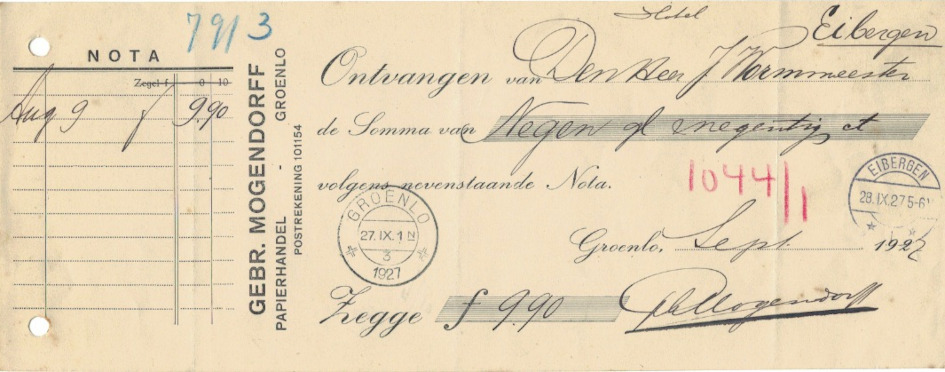 7913
NOTA
Zegel f 0 10
Aug 9 f 9.90
GEBR. MOGENDORFF
PAPIERHANDEL - GROENLO
POSTREKENING 101154
Hotel
Eibergen
Ontvangen van Den Heer J Wormmeester
de Somma van Negen gl negentig ct
volgens nevenstaande Nota.
1044/1
EIBERGEN
28.IX.27 5-6
GROENLO
27.IX.1 N
3
1927
Groenlo, Sept. 1927
Zegge f 9.90
Mogendorff